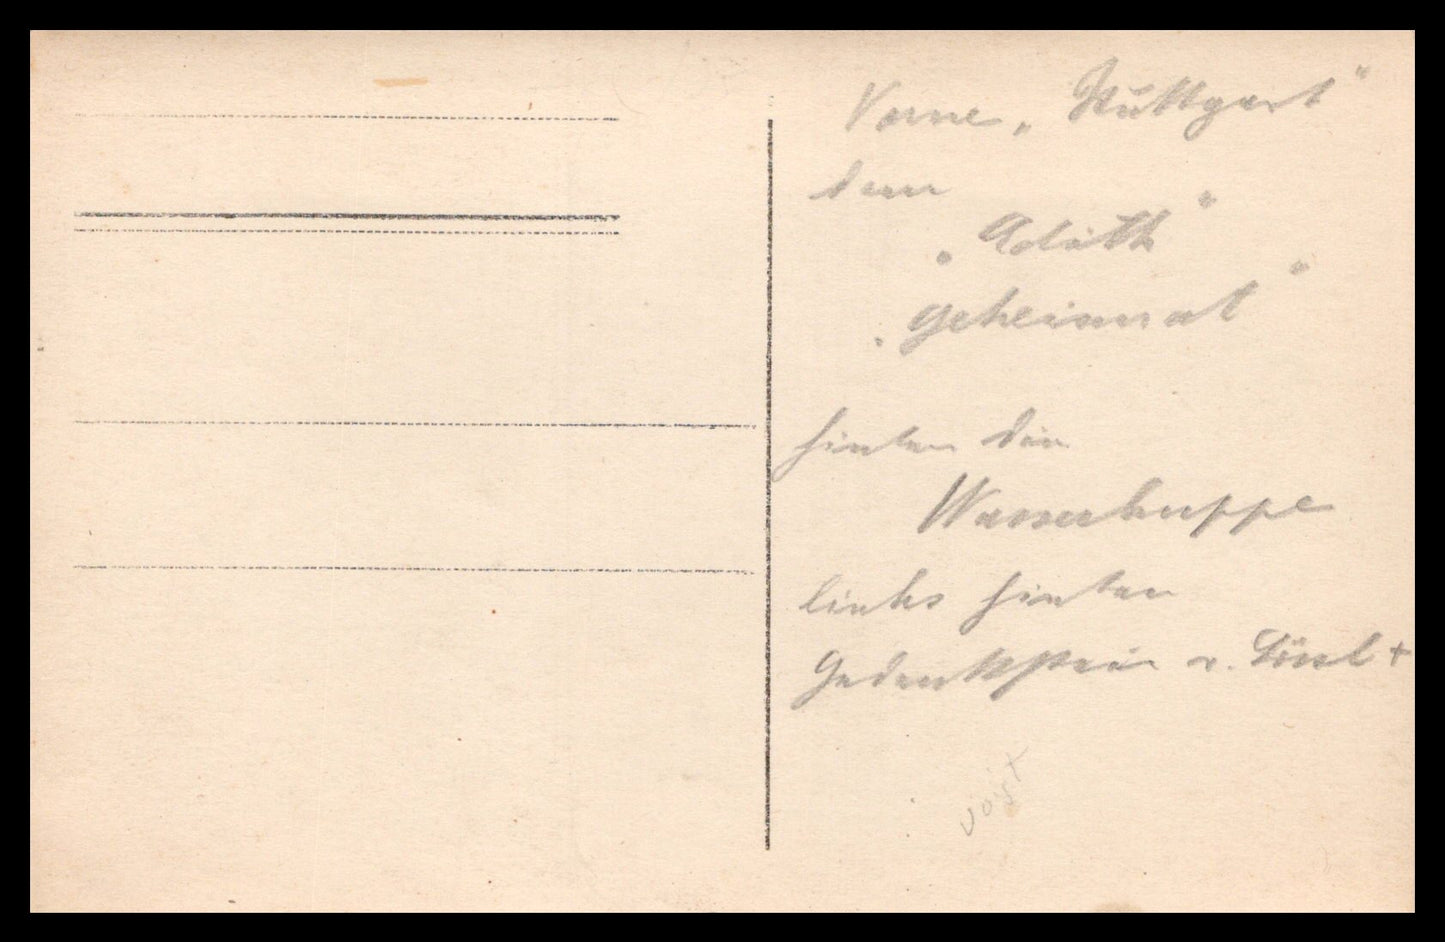 Vorne „Stuttgart"
dann
„Edith"
„Geheimrat"
hinten die
Wasserkuppe
links hinten
Gedenkstein v. Lössl +
voigt